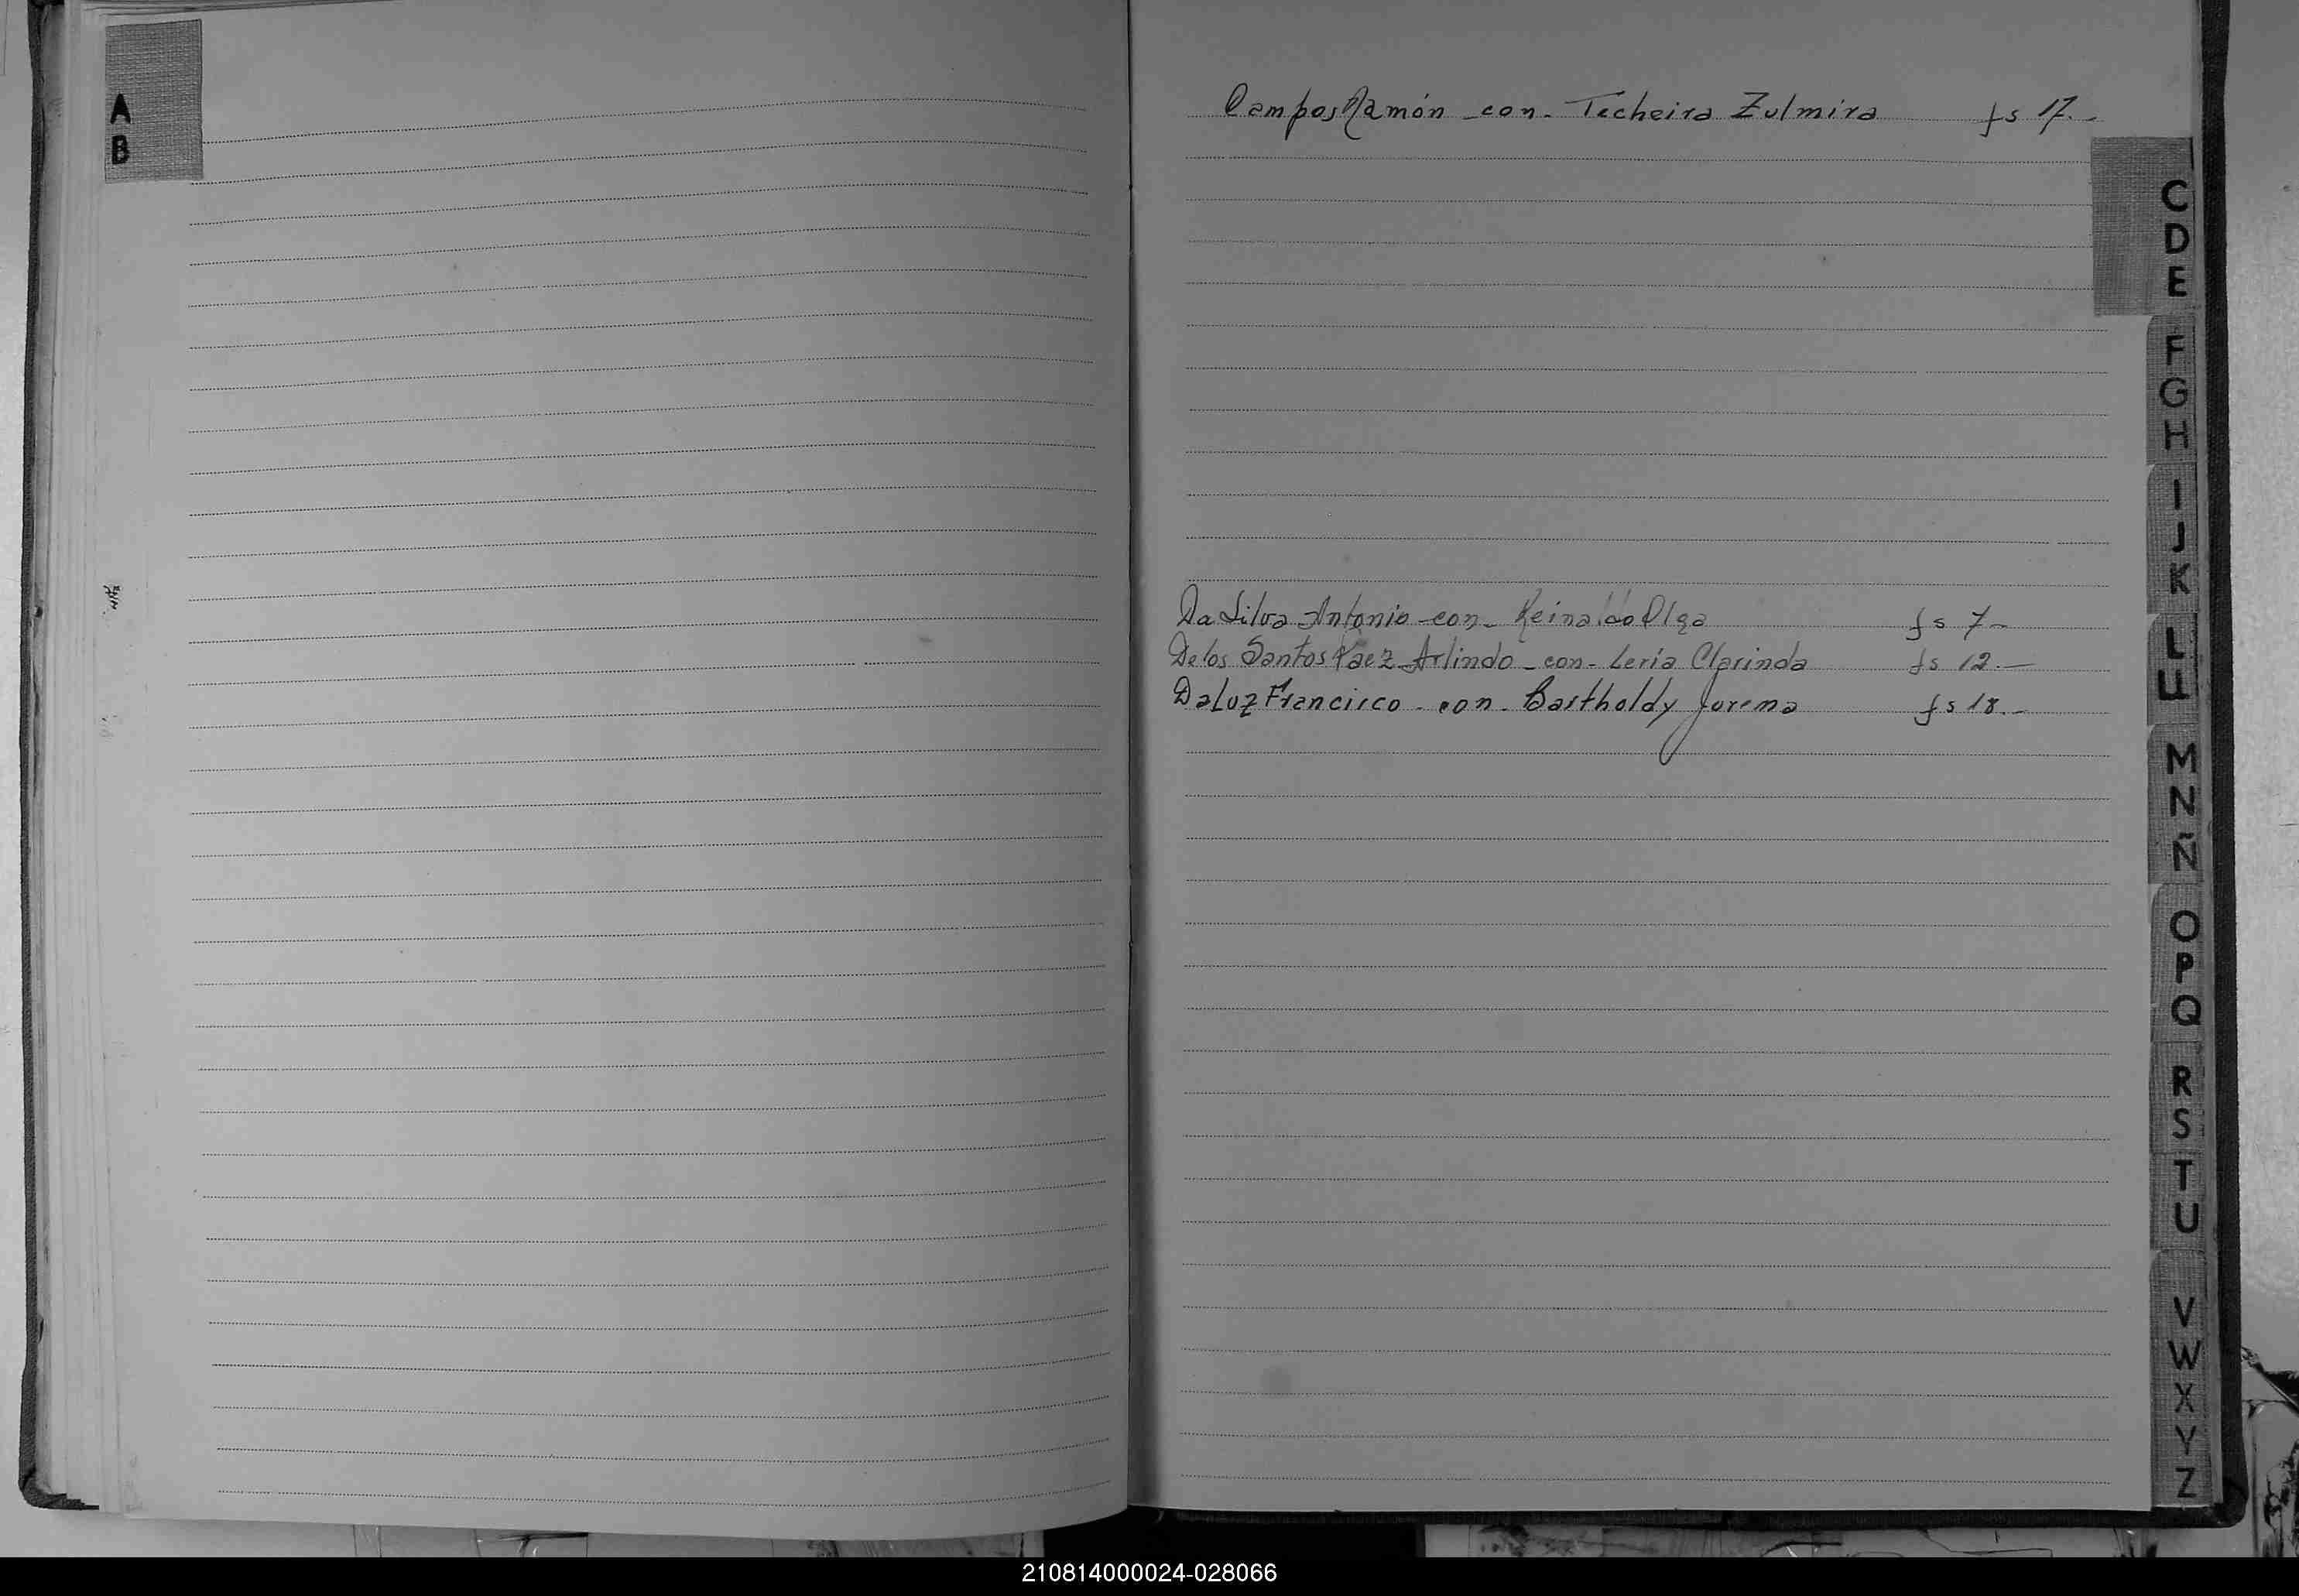 A
B
Campos Ramón - con - Techeira Zulmira fs 17.-
C
D
E
F
G
H
I
J
K
Da Silva Antonio - con - Reinaldo Olga fs 7-
L
De los Santos Paez Arlindo - con - Leria Clarinda fs 12.-
LL
Da Luz Francisco - con - Bartholdy Jurema fs 18.-
M
N
Ñ
O
P
Q
R
S
T
U
V
W
X
Y
Z
210814000024-028066